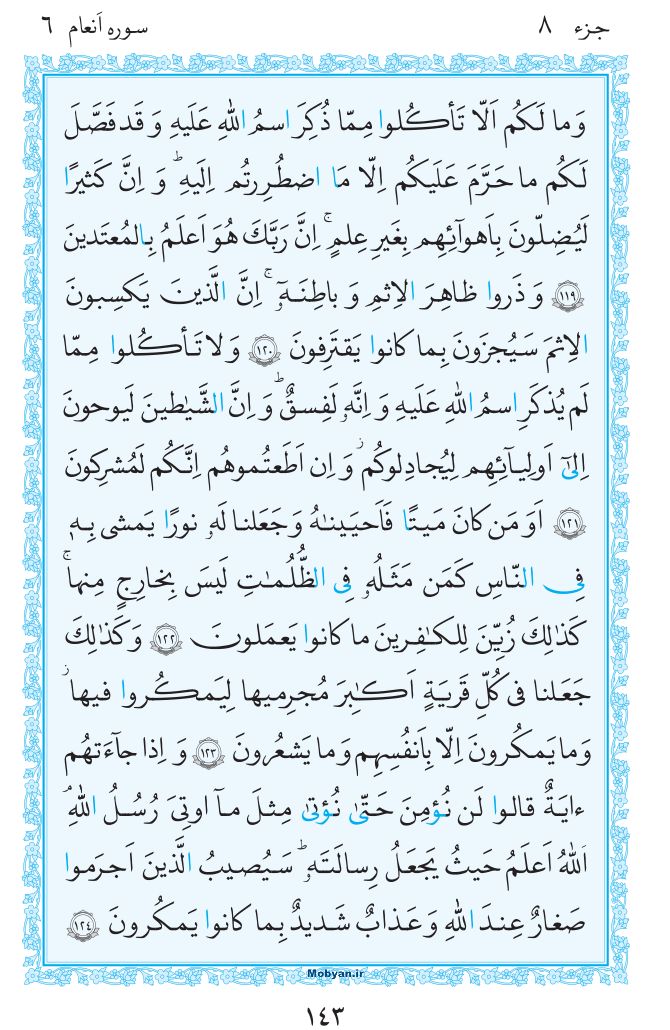 جزء ٨
سوره اَنعام ٦
وَما لَكُم اَلّا تَأكُلوا مِمّا ذُكِرَ اسمُ اللهِ عَلَيهِ وَ قَد فَصَّلَ
لَكُم ما حَرَّمَ عَلَيكُم اِلّا مَا اضطُرِرتُم اِلَيهِ ۗ وَ اِنَّ كَثيرًا
لَيُضِلّونَ بِاَهوآئِهِم بِغَيرِ عِلمٍ ۚ اِنَّ رَبَّكَ هُوَ اَعلَمُ بِالمُعتَدينَ
﴿١١٩﴾ وَ ذَروا ظاهِرَ الاِثمِ وَ باطِنَهٗۤ ۚ اِنَّ الَّذينَ يَكسِبونَ
الاِثمَ سَيُجزَونَ بِما كانوا يَقتَرِفونَ ﴿١٢٠﴾ وَ لا تَأكُلوا مِمّا
لَم يُذكَرِ اسمُ اللهِ عَلَيهِ وَ اِنَّهٗ لَفِسقٌ ۗ وَ اِنَّ الشَّيٰطينَ لَيوحونَ
اِلىٰۤ اَولِيـآئِهِم لِيُجادِلوكُم ۖ وَ اِن اَطَعتُموهُم اِنَّكُم لَمُشرِكونَ
﴿١٢١﴾ اَوَ مَن كانَ مَيتًا فَاَحيَينٰهُ وَ جَعَلنا لَهٗ نورًا يَمشى بِهٖ
فِى النّاسِ كَمَن مَثَلُهٗ فِى الظُّلُمٰتِ لَيسَ بِخارِجٍ مِنها ۚ
كَذٰلِكَ زُيِّنَ لِلكٰفِرينَ ما كانوا يَعمَلونَ ﴿١٢٢﴾ وَ كَذٰلِكَ
جَعَلنا فى كُلِّ قَريَةٍ اَكٰبِرَ مُجرِميها لِيَمكُروا فيها ۖ
وَ ما يَمكُرونَ اِلّا بِاَنفُسِهِم وَ ما يَشعُرونَ ﴿١٢٣﴾ وَ اِذا جآءَتهُم
ءايَةٌ قالوا لَن نُؤمِنَ حَتّىٰ نُؤتىٰ مِثلَ مآ اوتِىَ رُسُلُ اللهِ ۘ
اَللهُ اَعلَمُ حَيثُ يَجعَلُ رِسالَتَهٗ ۗ سَيُصيبُ الَّذينَ اَجرَموا
صَغارٌ عِندَ اللهِ وَ عَذابٌ شَديدٌ بِما كانوا يَمكُرونَ ﴿١٢٤﴾
Mobyan.ir
١٤٣